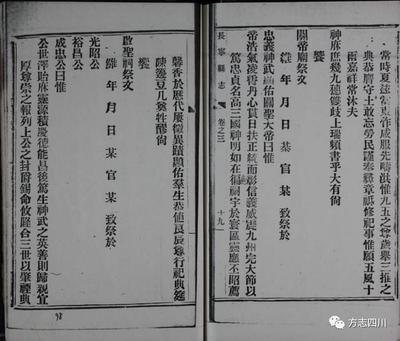 當時夏茲當東作咸服先疇洪惟九五之尊歲舉三推之
典恭膺守土敢忘勞民謹奉彝章祗修祀事惟願五風十
雨嘉祥常沐夫
神庥庶幾九穗雙岐上瑞頻書乎大有尚
饗
關帝廟祭文
維 年 月 日某官某 致祭於
忠義神武靈佑關聖大帝曰惟
帝浩氣凌霄丹心貫日扶正統而彰信義威震九州完大節以
篤忠貞名高三國神明如在徧祠宇於寰區靈應丕昭薦
長寧縣志 卷之三 十九
馨香於歷代屢徵異蹟顯佑羣生恭值良辰尊行祀典筵
陳籩豆几奠牲醪尚
饗
啟聖祠祭文
維 年 月 日某官某 致祭於
光昭公
裕昌公
成忠公曰惟
公世澤貽庥靈源積慶德能昌後篤生神武之英善則歸親宜
厚尊崇之報列上公之封爵錫命攸隆合三世以肇禋典
方志四川